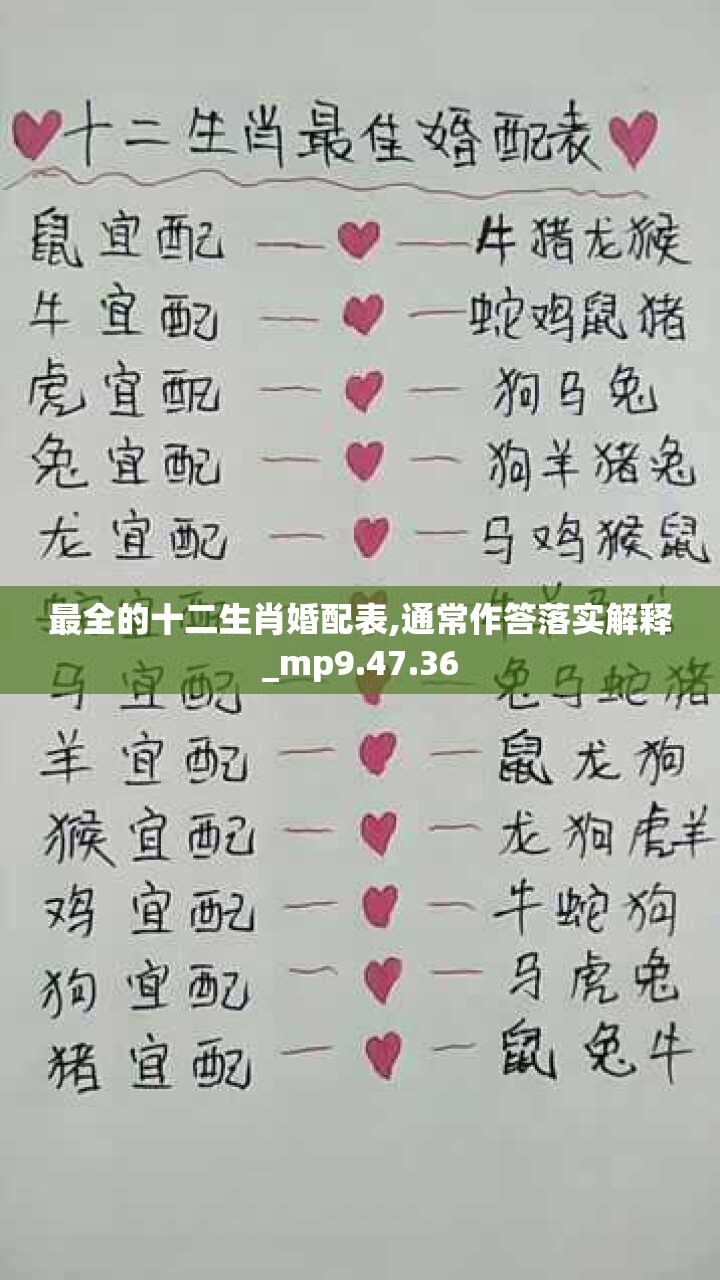 十二生肖最佳婚配表
鼠宜配 牛猪龙猴
牛宜配 蛇鸡鼠猪
虎宜配 狗马兔
兔宜配 狗羊猪兔
龙宜配 马鸡猴鼠
最全的十二生肖婚配表,通常作答落实解释
_mp9.47.36
马宜配 兔马蛇猪
羊宜配 鼠龙狗
猴宜配 龙狗虎羊
鸡宜配 牛蛇狗
狗宜配 马虎兔
猪宜配 鼠兔牛